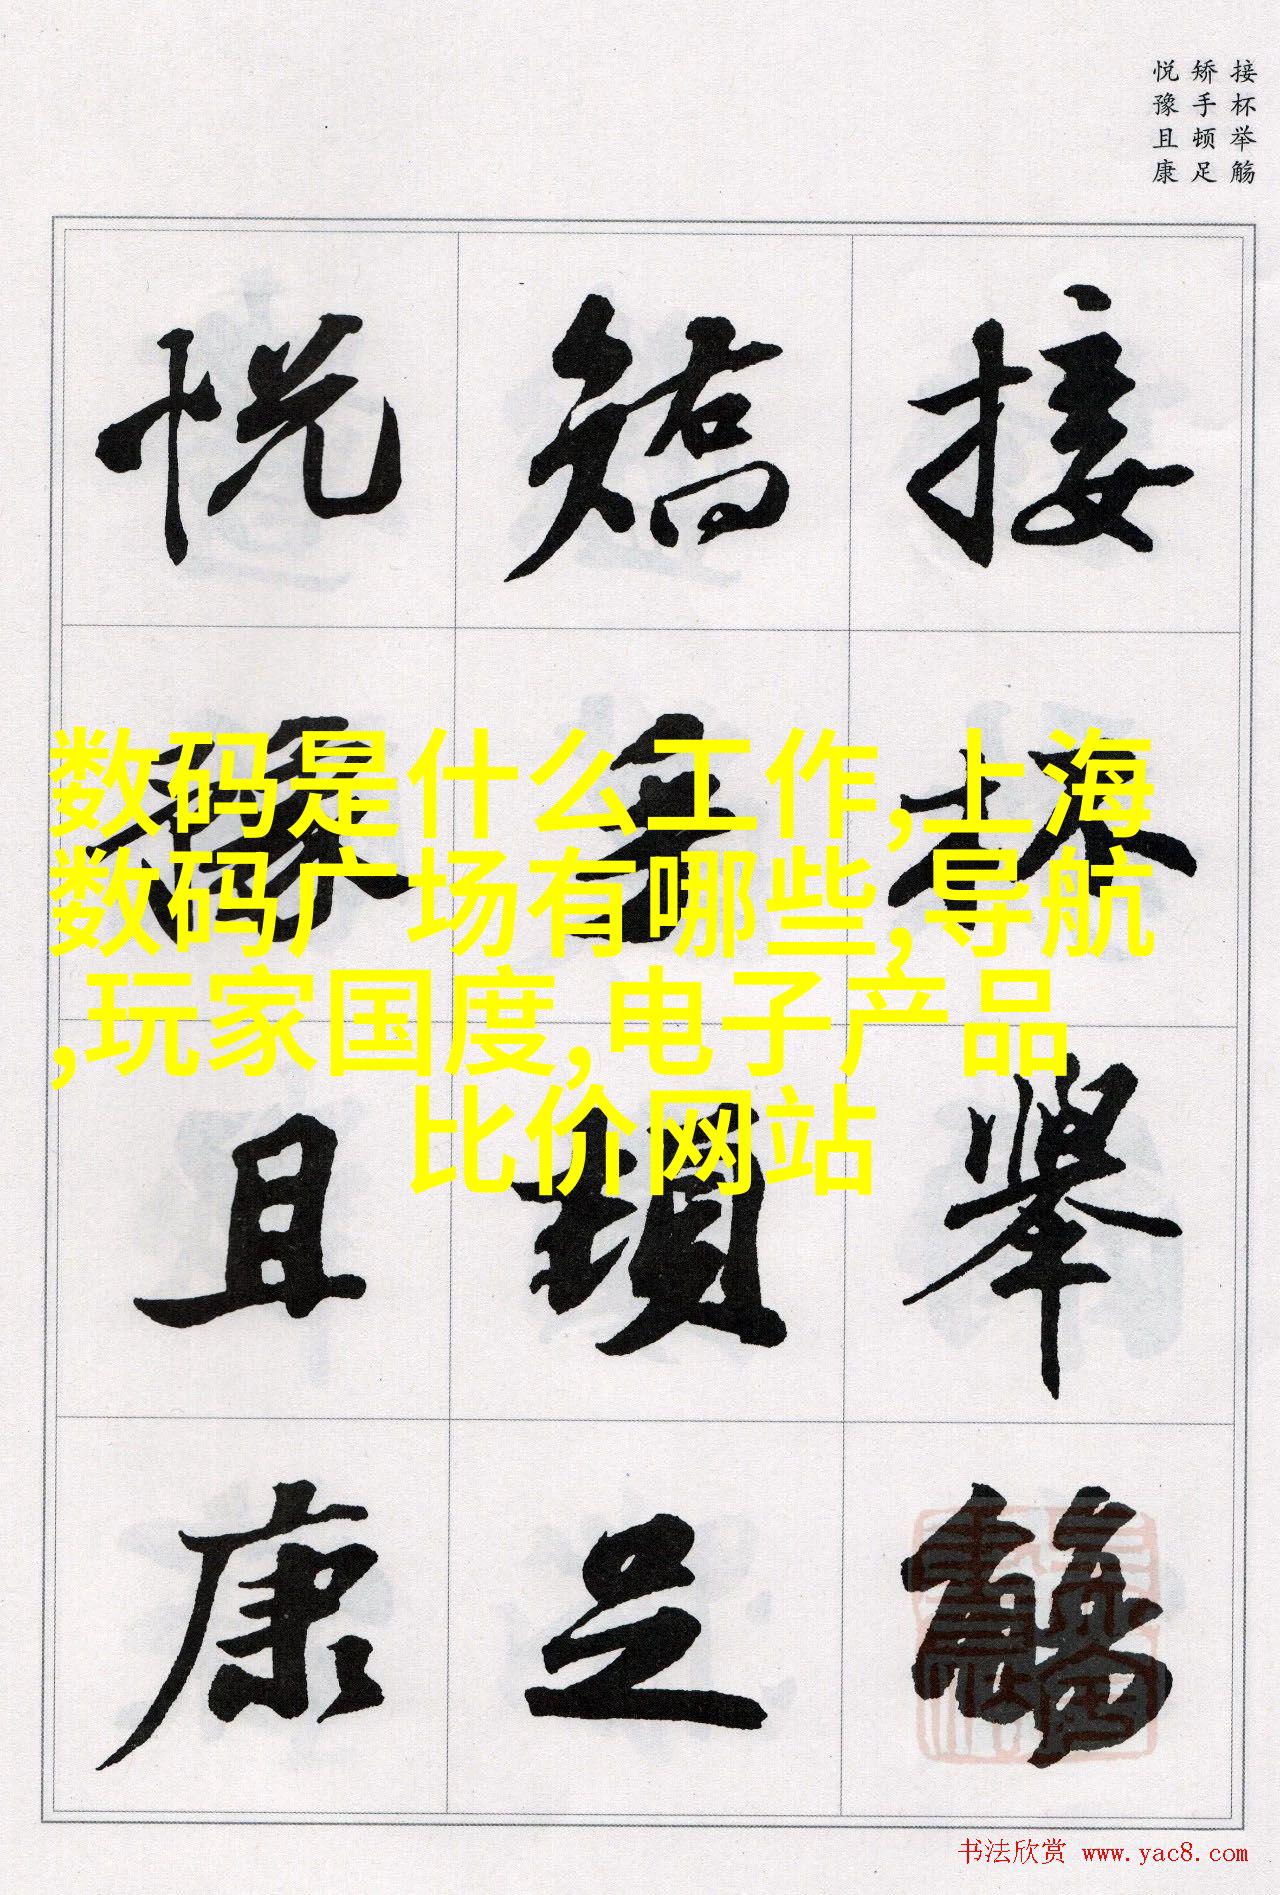 接杯举觞
矫手顿足
悦豫且康
接杯舉觴
矯手頓足
悦豫且康
数码是什么工作,上海
数码广场有哪些,导航
,玩家国度,电子产品
比价网站
书法欣赏 www.yac8.com